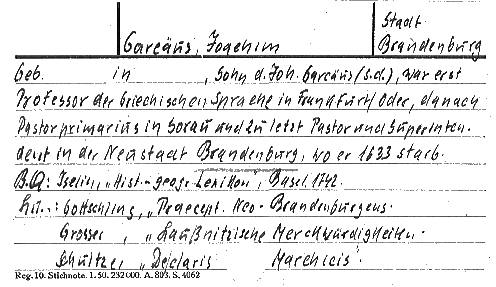 Stadt
Garcäus, Joachim Brandenburg
Geb. in , Sohn d. Joh. Garcäus (s.d.), war erst
Professor der Griechischen Sprache in Frankfurt/Oder, danach
Pastor primarius in Sorau und zuletzt Pastor und Superinten-
dent in der Neustadt Brandenburg, wo er 1633 starb.
B.Q: Iselin, "Hist.-geogr. Lexikon", Basel 1742.
Lit.: Gottschling, "Praecept. Neo-Brandenburgens.
Grosser, "Laußnitzische Merckwürdigkeiten.
Schultze, "De claris Marchicis".
Reg. 10. Stichnote. 1. 50. 232000. A. 803. S. 4062